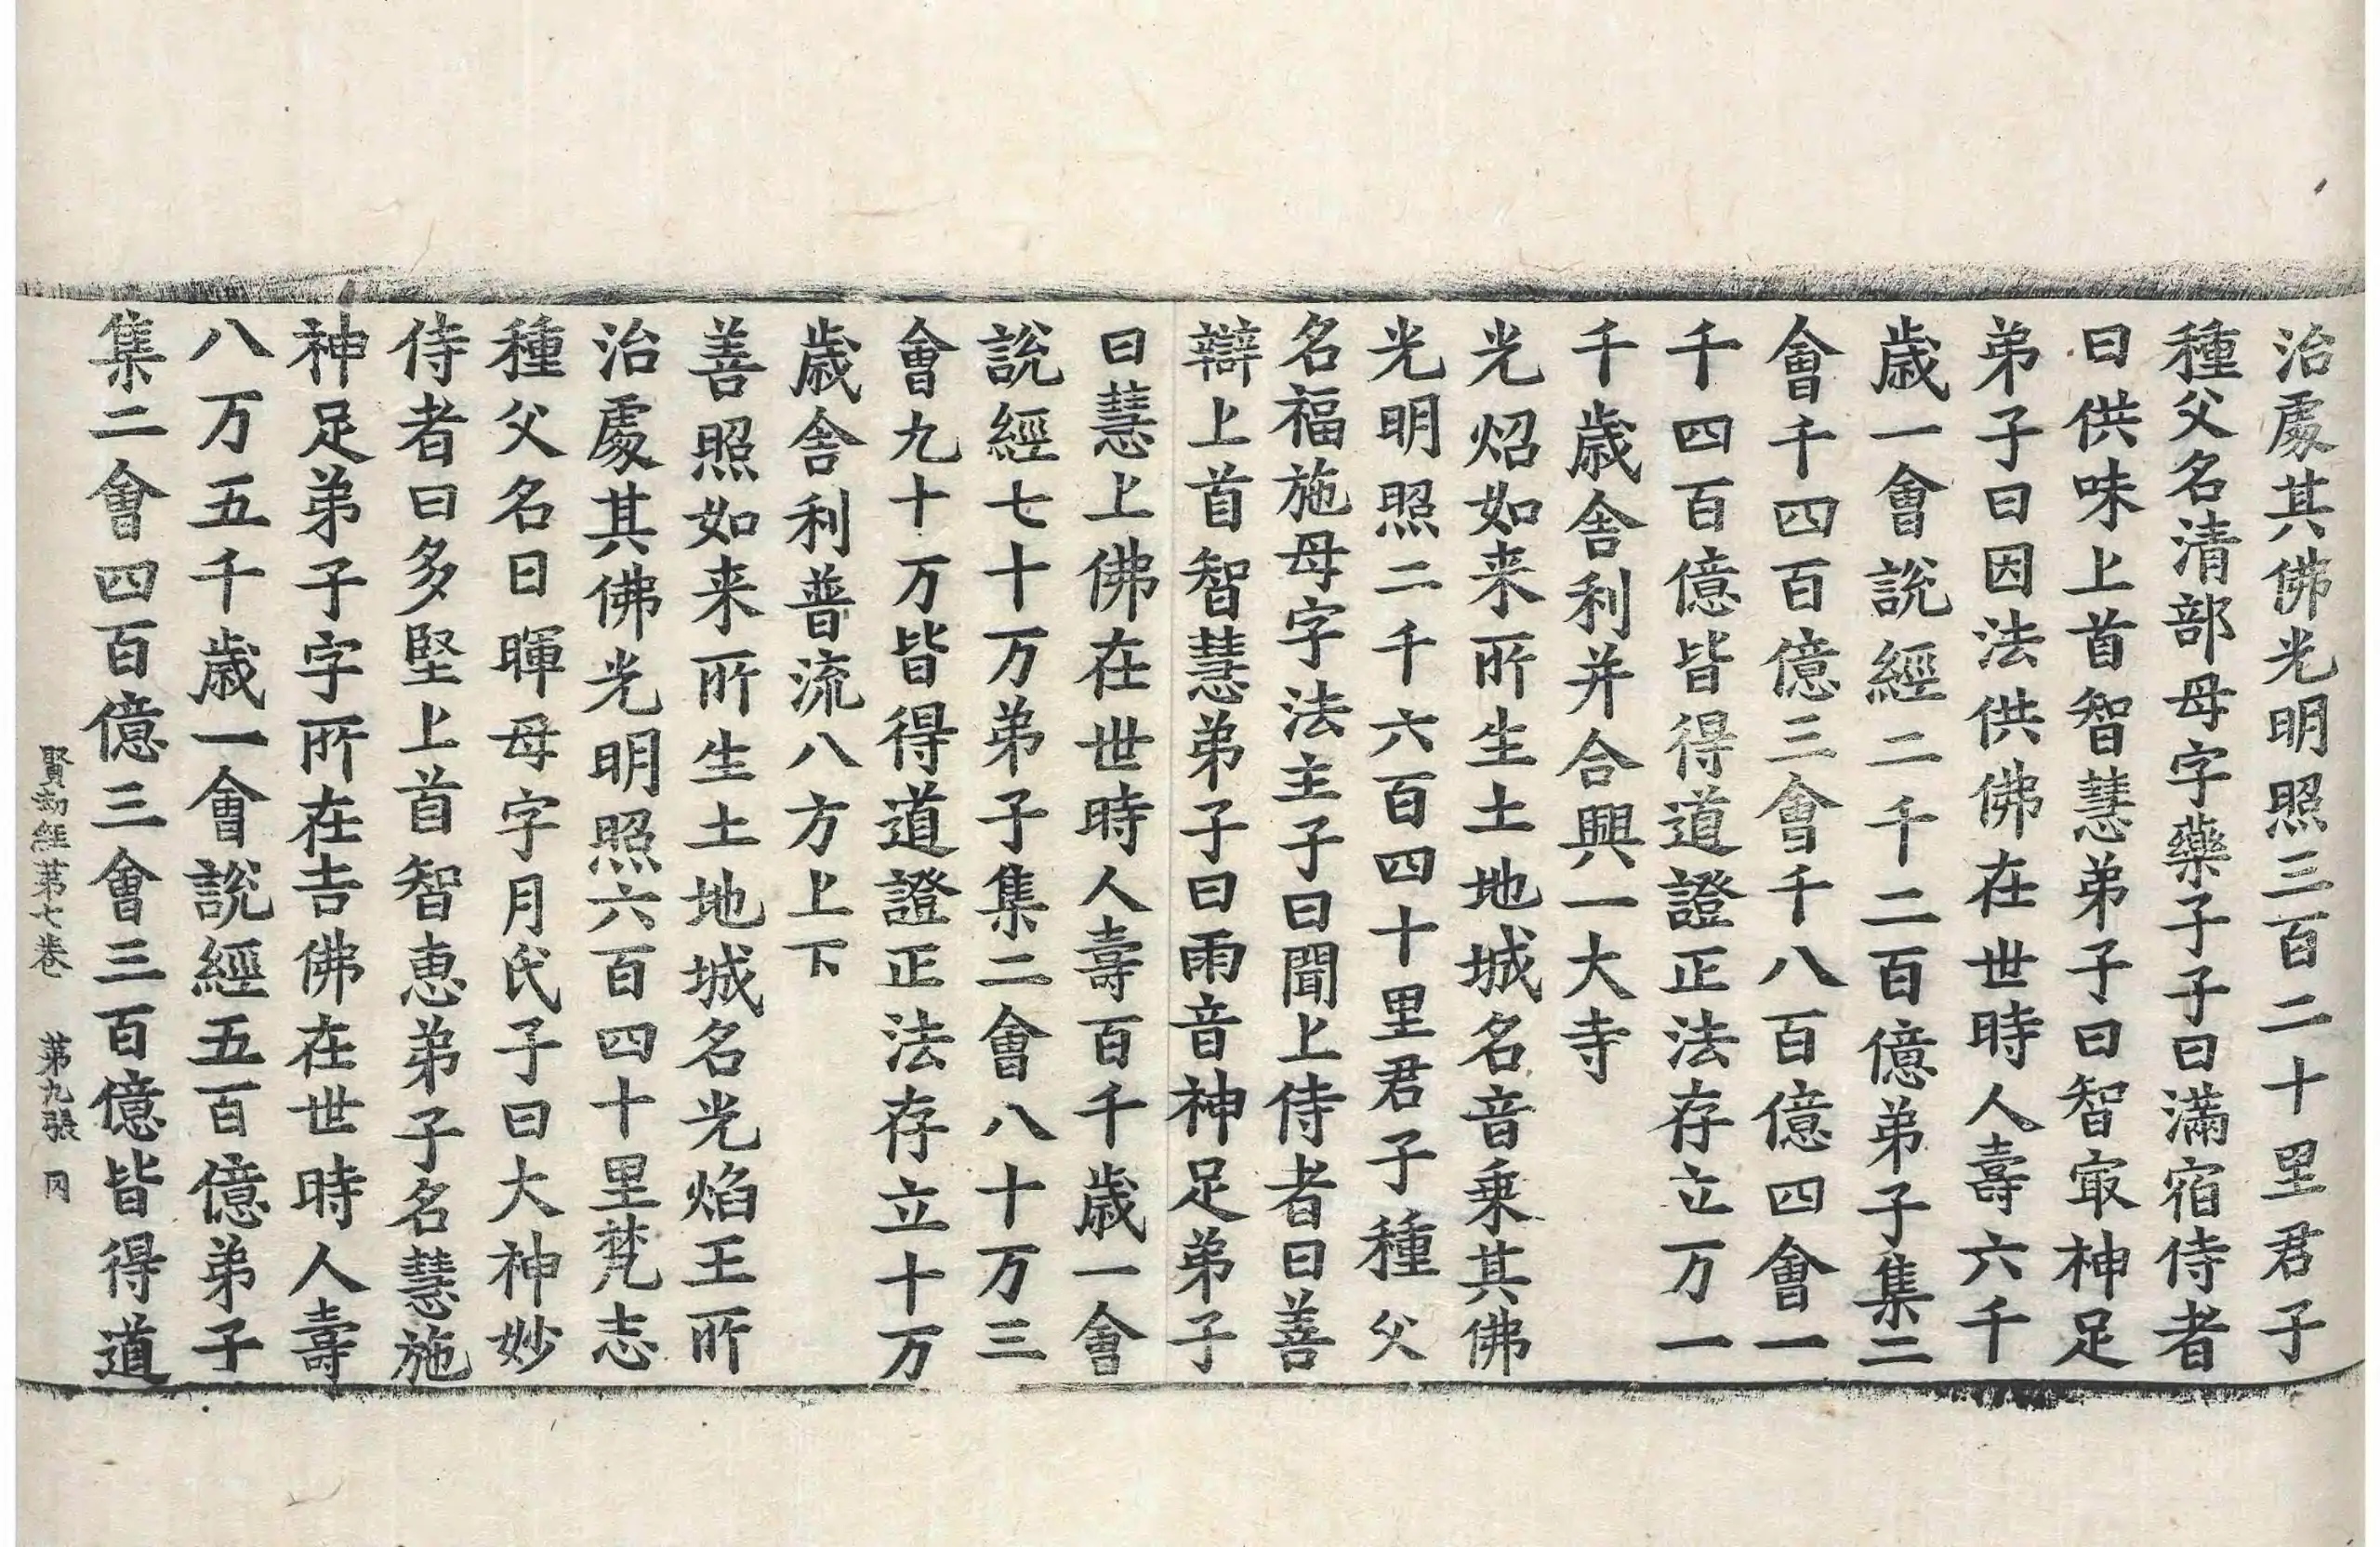 治處其佛光明照三百二十里君子
種父名清部母字藥子子曰滿宿侍者
曰供味上首智慧弟子曰智㝡神足
弟子曰因法供佛在世時人壽六千
歲一會說經二千二百億弟子集二
會千四百億三會千八百億四會一
千四百億皆得道證正法存立万一
千歲舍利并合興一大寺
光炤如来所生土地城名音乗其佛
光明照二千六百四十里君子種父
名福施母字法主子曰聞上侍者曰善
辯上首智慧弟子曰雨音神足弟子
曰慧上佛在世時人壽百千歲一會
說經七十万弟子集二會八十万三
會九十万皆得道證正法存立十万
歲舍利普流八方上下
善照如来所生土地城名光焰王所
治處其佛光明照六百四十里梵志
種父名日暉母字月氏子曰大神妙
侍者曰多堅上首智恵弟子名慧施
神足弟子字所在吉佛在世時人壽
八万五千歲一會說經五百億弟子
集二會四百億三會三百億皆得道
賢劫經第七卷 第九張 冈